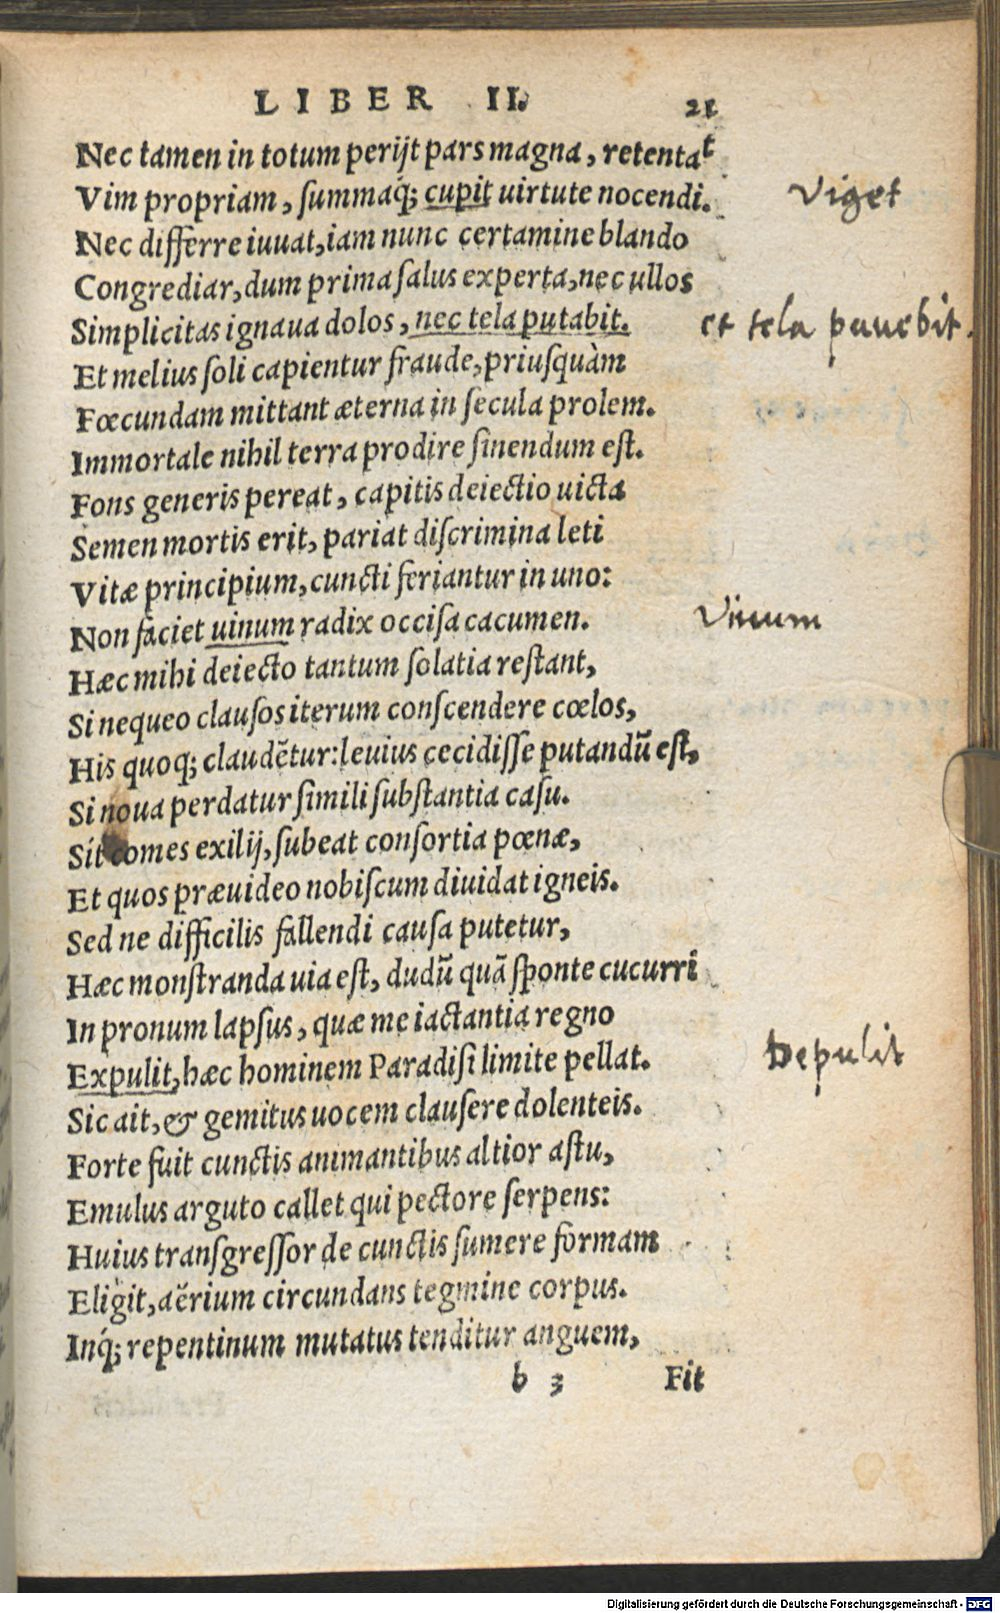 LIBER II. 21
Nec tamen in totum perijt pars magna, retentat
Vim propriam, summaq́; cupit uirtute nocendi. Viget
Nec differre iuuat, iam nunc certamine blando
Congrediar, dum prima salus experta, nec ullos
Simplicitas ignaua dolos, nec tela putabit. et tela pauebit.
Et melius soli capientur fraude, priusquàm
Fœcundam mittant æterna in secula prolem.
Immortale nihil terra prodire sinendum est.
Fons generis pereat, capitis deiectio uicta
Semen mortis erit, pariat discrimina leti
Vitæ principium, cuncti feriantur in uno:
Non faciet uinum radix occisa cacumen. Viuum
Hæc mihi deiecto tantum solatia restant,
Si nequeo clausos iterum conscendere cœlos,
His quoq; claudētur: leuius cecidisse putandū est,
Si noua perdatur simili substantia casu.
Sit comes exilij, subeat consortia pœnæ,
Et quos præuideo nobiscum diuidat igneis.
Sed ne difficilis fallendi causa putetur,
Hæc monstranda uia est, dudū quā sponte cucurri
In pronum lapsus, quæ me iactantia regno
Expulit, hæc hominem Paradisi limite pellat. Depulit
Sic ait, & gemitus uocem clausere dolenteis.
Forte fuit cunctis animantibus altior astu,
Emulus arguto callet qui pectore serpens:
Huius transgressor de cunctis sumere formam
Eligit, aërium circundans tegmine corpus.
Inq́; repentinum mutatus tenditur anguem,
b 3 Fit
Digitalisierung gefördert durch die Deutsche Forschungsgemeinschaft - DFG